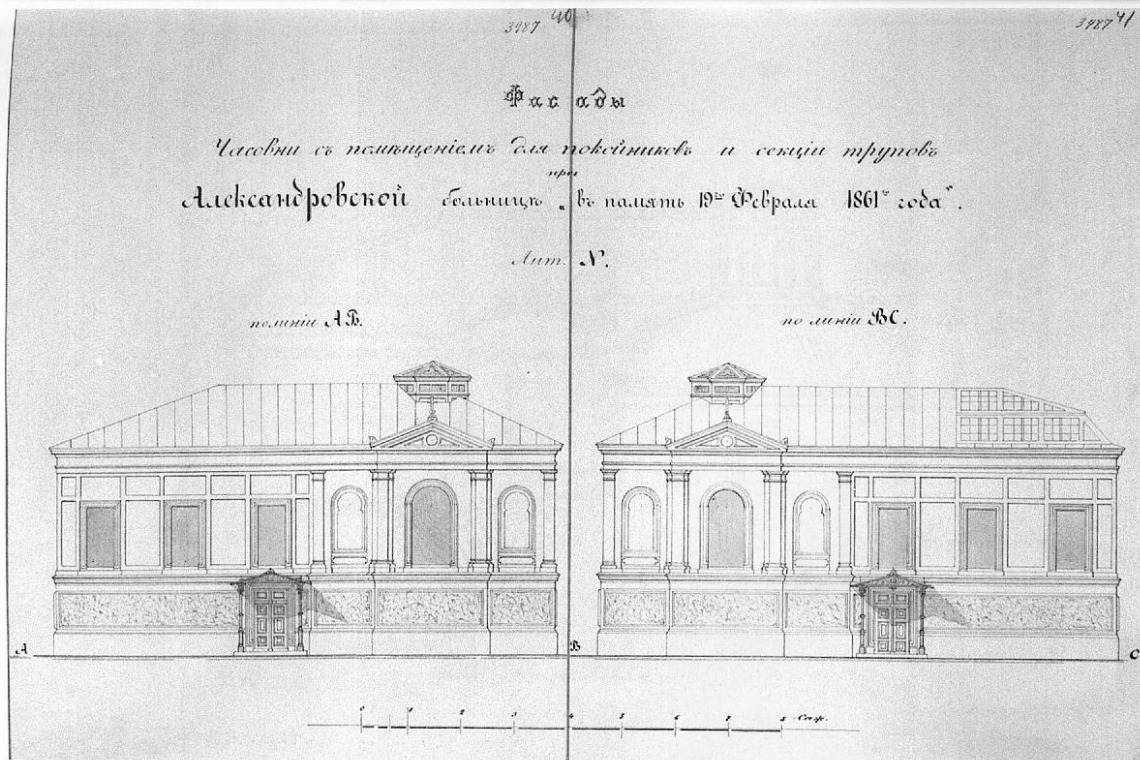 3487 40
3487 41
Фасады
Часовни съ помѣщеніемъ для покойниковъ и секціи труповъ
при
Александровской больницѣ „въ память 19го Февраля 1861го года".
Лит. N.
по линіи АВ.
по линіи ВС.
А
В
С
0 1 2 3 4 5 6 7 8 Саж.